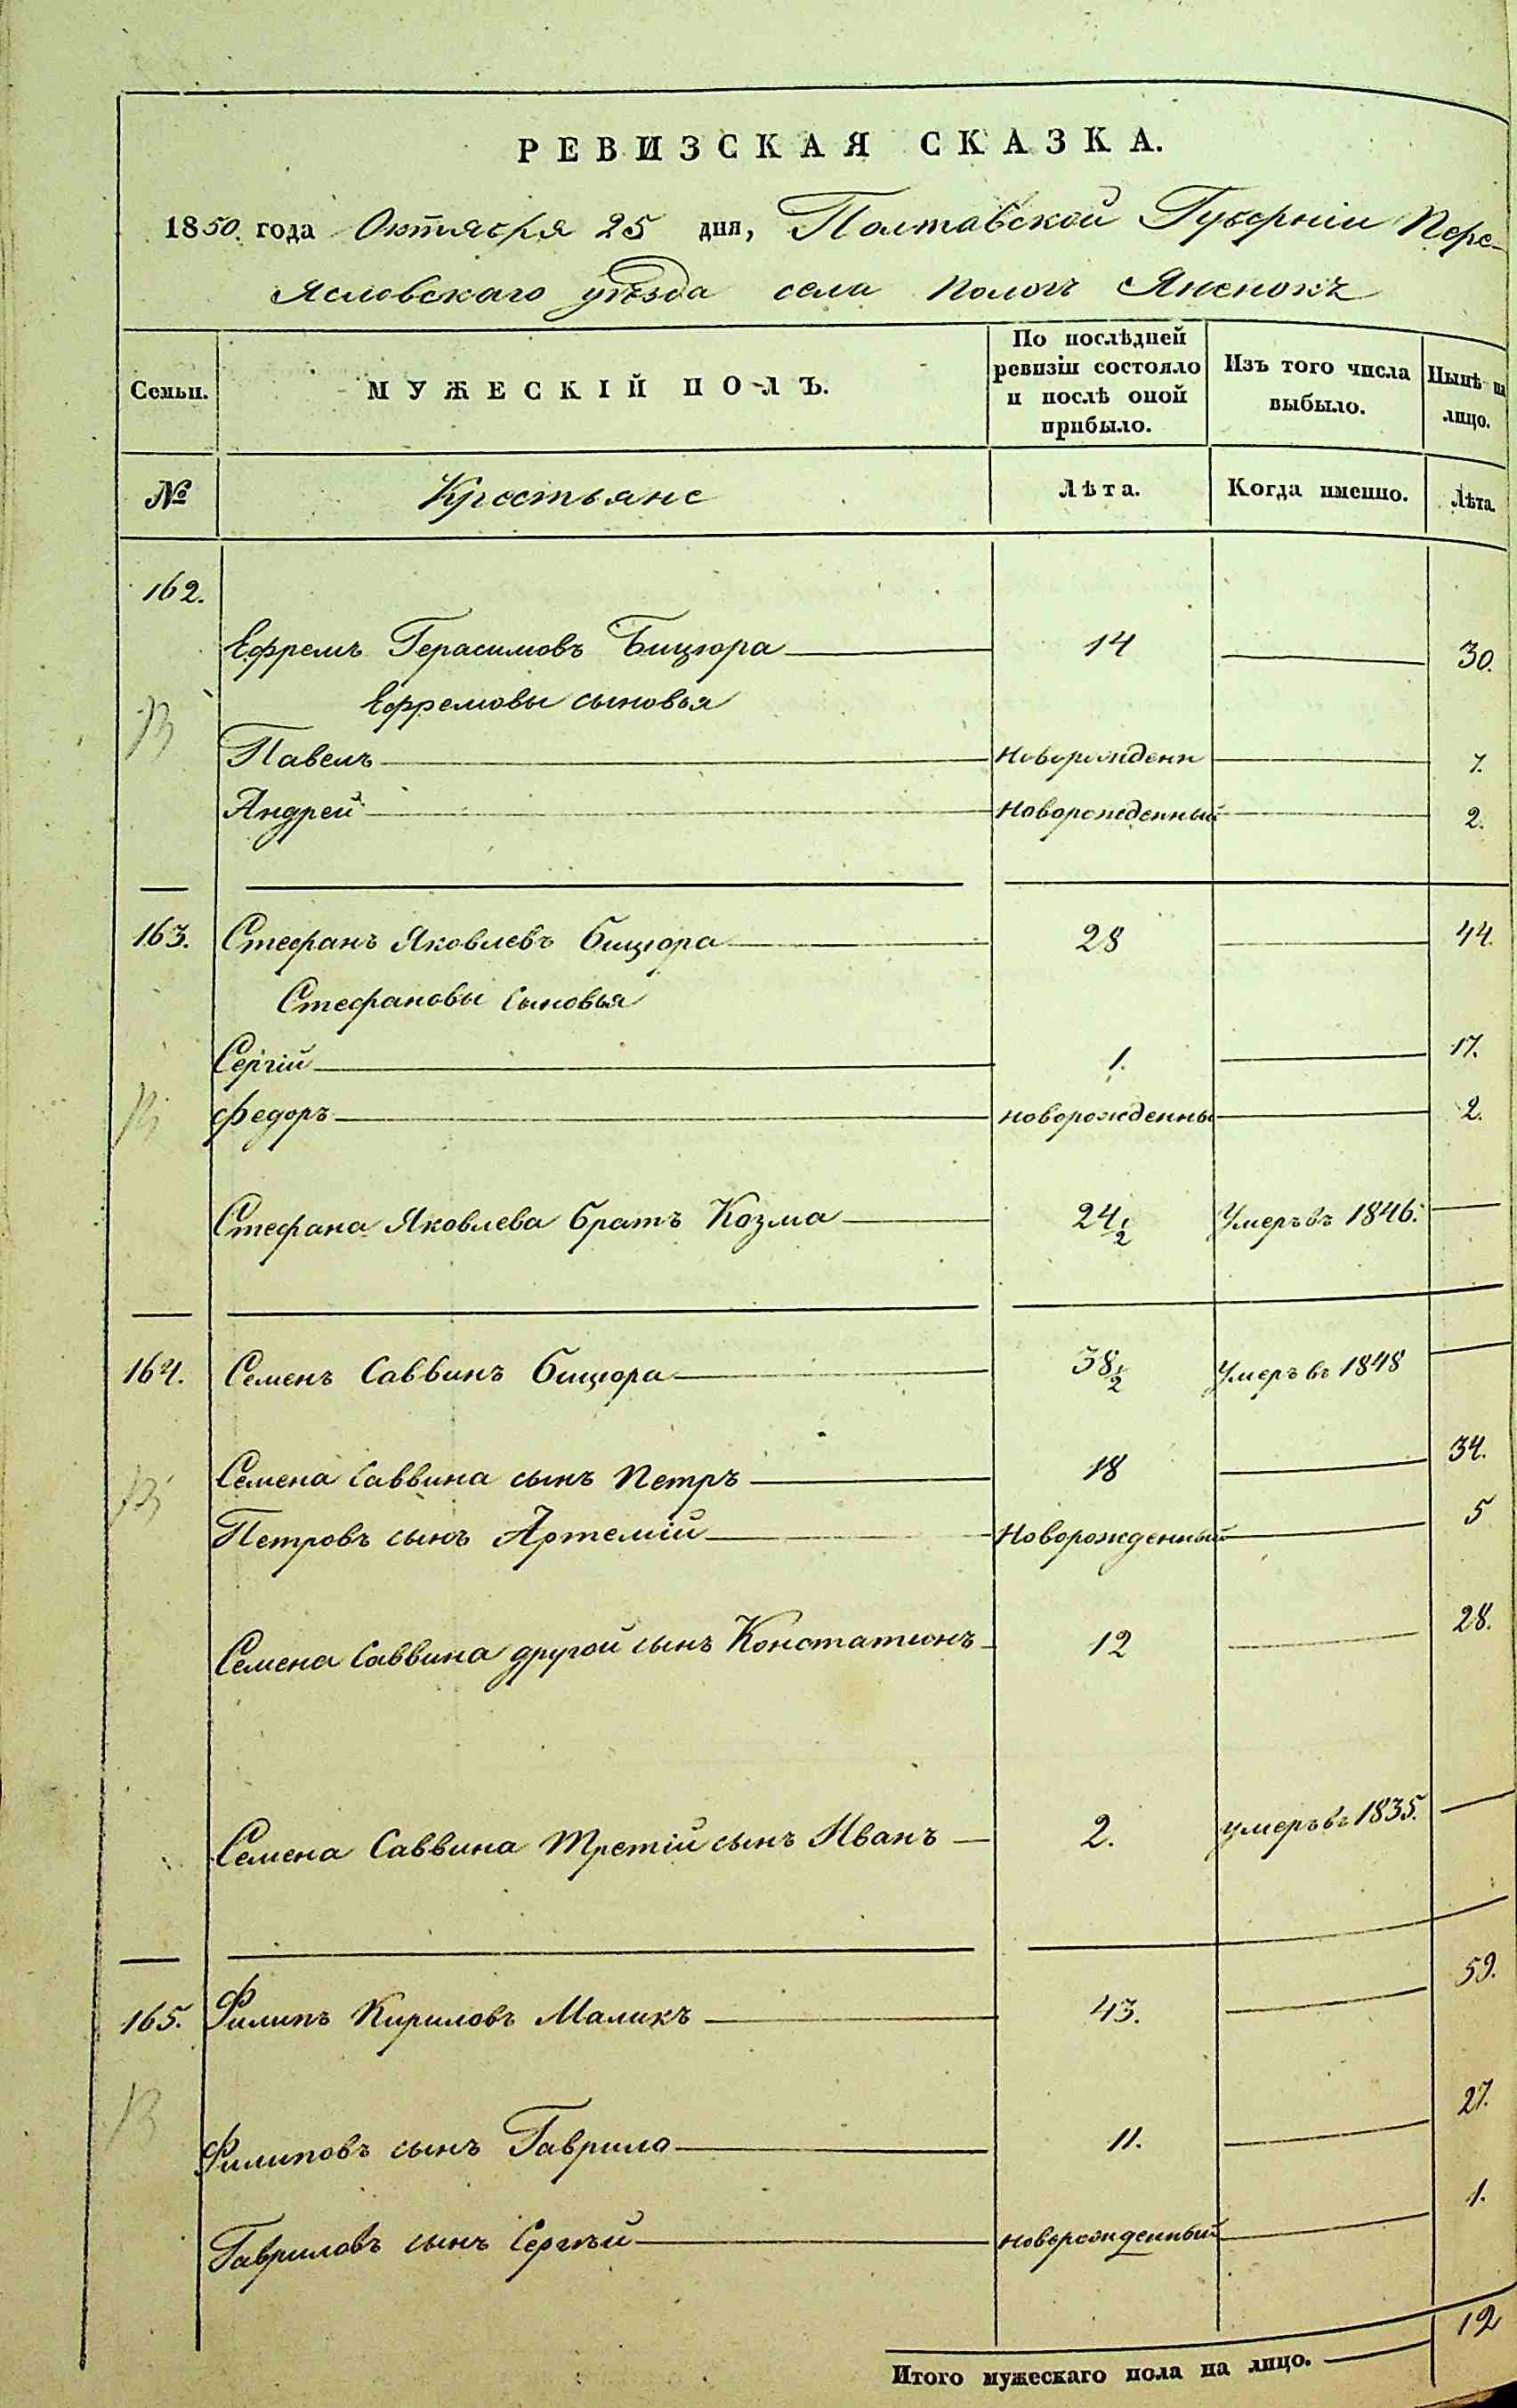 РЕВИЗСКАЯ СКАЗКА.
1850. года Октября 25 дня, Полтавской Губерніи Пере-
яславскаго уѣзда села Пологъ Яненокъ
Семьи. МУЖЕСКІЙ ПОЛЪ. По послѣдней ревизіи состояло и послѣ оной прибыло. Изъ того числа выбыло. Нынѣ на лицо.
№ Крестьяне Лѣта. Когда именно. Лѣта.
162.
Ефремъ Герасимовъ Бицюра 14 30.
Ефремовы сыновья
Павелъ Новорожденн 7.
Андрей Новорожденный 2.
163. Стефанъ Яковлевъ Бицюра 28 44.
Стефановы сыновья
Сергій 1. 17.
Федоръ новорожденны 2.
Стефана Яковлева братъ Козма 24 1/2 Умеръ въ 1846.
164. Семенъ Саввинъ Бицюра 38 1/2 Умеръ въ 1848
Семена Саввина сынъ Петръ 18 34.
Петровъ сынъ Артемій Новорожденный 5
Семена Саввина другой сынъ Констатинъ 12 28.
Семена Саввина третій сынъ Иванъ 2. умеръ въ 1835.
165. Филипъ Кириловъ Маликъ 43. 59.
Филиповъ сынъ Гаврило 11. 27.
Гавриловъ сынъ Сергѣй новорожденный 1.
Итого мужескаго пола на лицо. 12